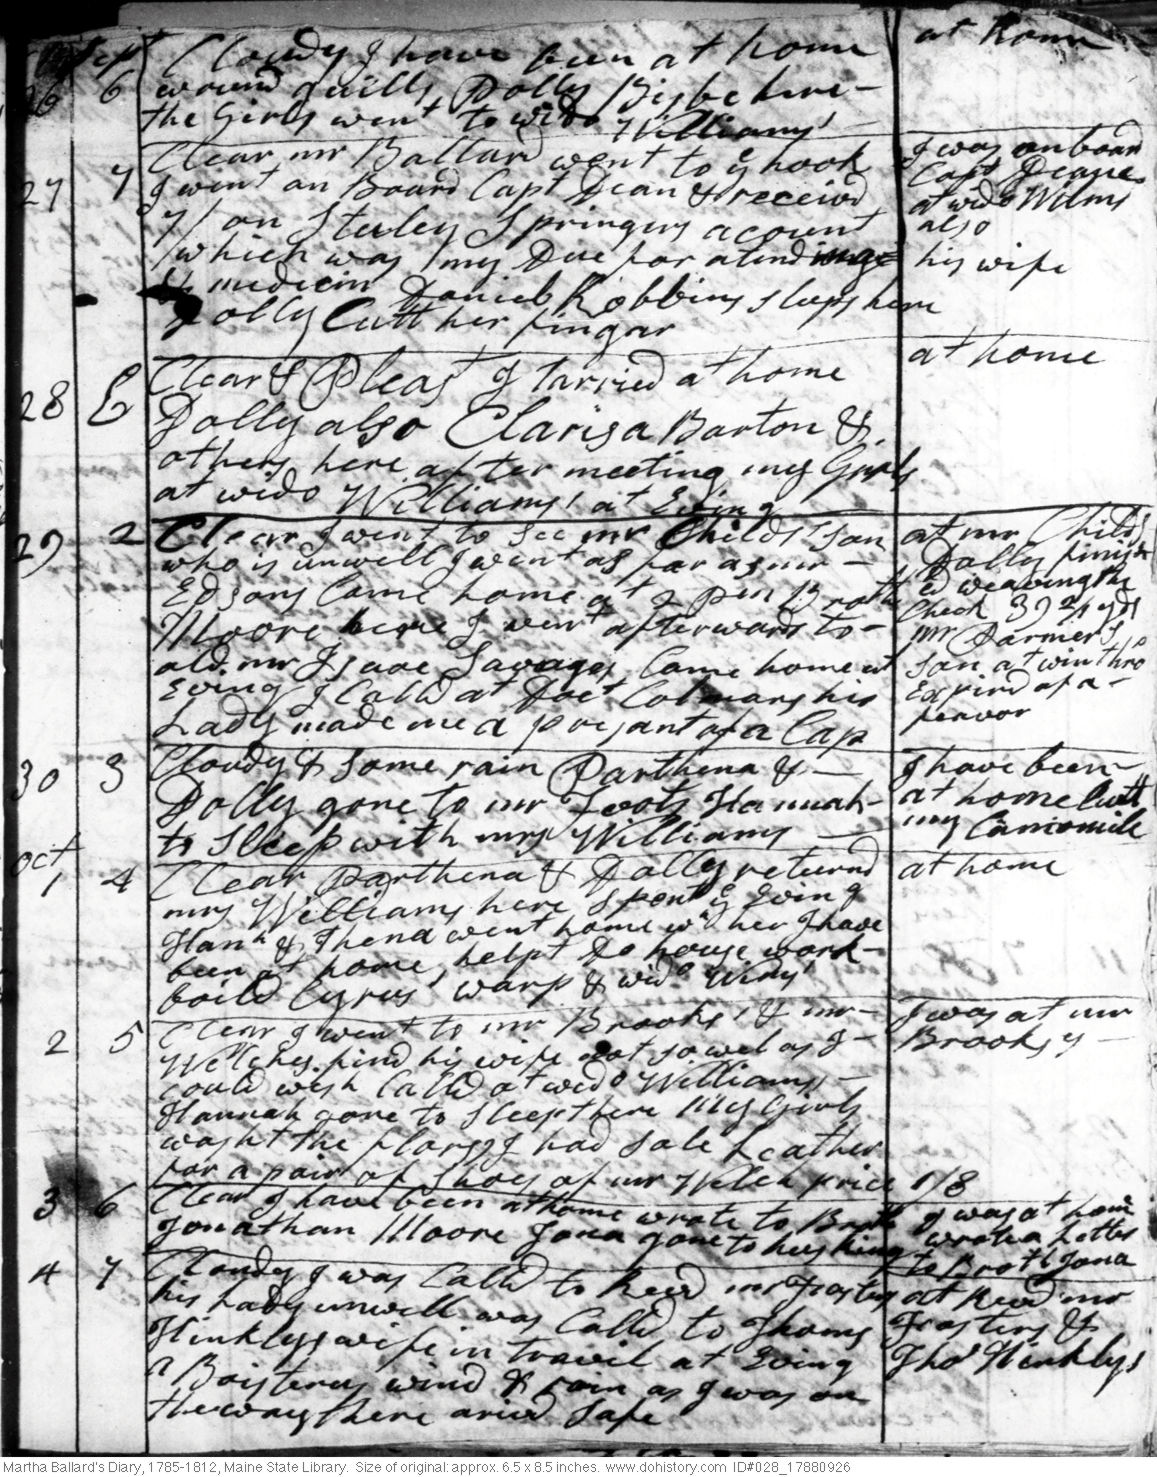 Sept
26 6 Cloudy I have been at home at home
wound quills, Dolly Bisbe here -
the Girls went to wido Williams'
27 7 Clear, mr Ballard went to ye hook I was on board
I went on Board Capt Dean & receivd Capt Deane
7/ on Stuley Springers acount at wido Wilms
which was my Due for atending also
his wife
& medicin Daniel Robbins sleeps here
Dolly Cutt her fingar
28 E Clear & Pleast I tarried at home at home
Dolly also Clarisa Barton &
others here after meeting my Girls
at wido Williams' at Evng
29 2 Clear I went to see mr Childs' son at mr Childs
who is unwell I went as far as mr - Dolly finisht
Edsons Came home at 2 pm Broth ed weaving the
Moore here I went afterwards to - Check 39 yds
old mr Isaac Savages Came home at mr Parmers
Evng I Calld at Doct Colmans his son at winthro
Lady made me a presant of a Cap Expird of a -
fervor
30 3 Cloudy & some rain Parthena & - I have been -
Dolly gone to mr Foots Hannah - at home Cutt
to Sleep with mrs Williams - my Camomile
Oct
1 4 Clear Parthena & Dolly returnd at home
mrs Williams here spent ye Evng
Hanh & Thena went home wh her I have
been at home, helpt Do house work -
boild Cyrus' warp & wido Wims'
2 5 Clear I went to mr Brooks' & mr - I was at mr
Welches. find his wife not so wel as I - Brooks's -
could wish Calld at wido Williams -
Hannah gone to sleep there My Girls
washt the floars I had Sole Leather
for a pair of Shoes of mr Welch price 1/8
3 6 Clear I have been at home wrote to Broth I was at home
Jonathan Moore Jona gone to husking wrote a Letter
to Broth Jona
4 7 Cloudy I was Calld to Revd mr Fosters at Revd mr
his Lady unwell was Calld to Thoms Fosters &
Hinklys wife in travil at Evng Thos Hinklys
a Boisterus wind & rain as I was on
the way there arivd safe
Martha Ballard's Diary, 1785-1812, Maine State Library. Size of original: approx. 6.5 x 8.5 inches. www.dohistory.com ID#028_17880926